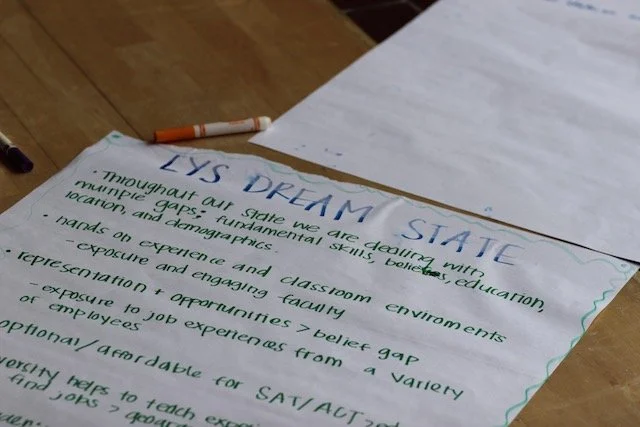 LYS DREAM STATE
· Throughout our state we are dealing with
multiple gaps; fundamental skills, beliefs, education,
location, and demographics.
· hands on experience and classroom enviroments
- exposure and engaging faculty
· representation + opportunities > belief gap
- exposure to job experiences from a variety
of employees
optional/affordable for SAT/ACT
helps to teach
find jobs >